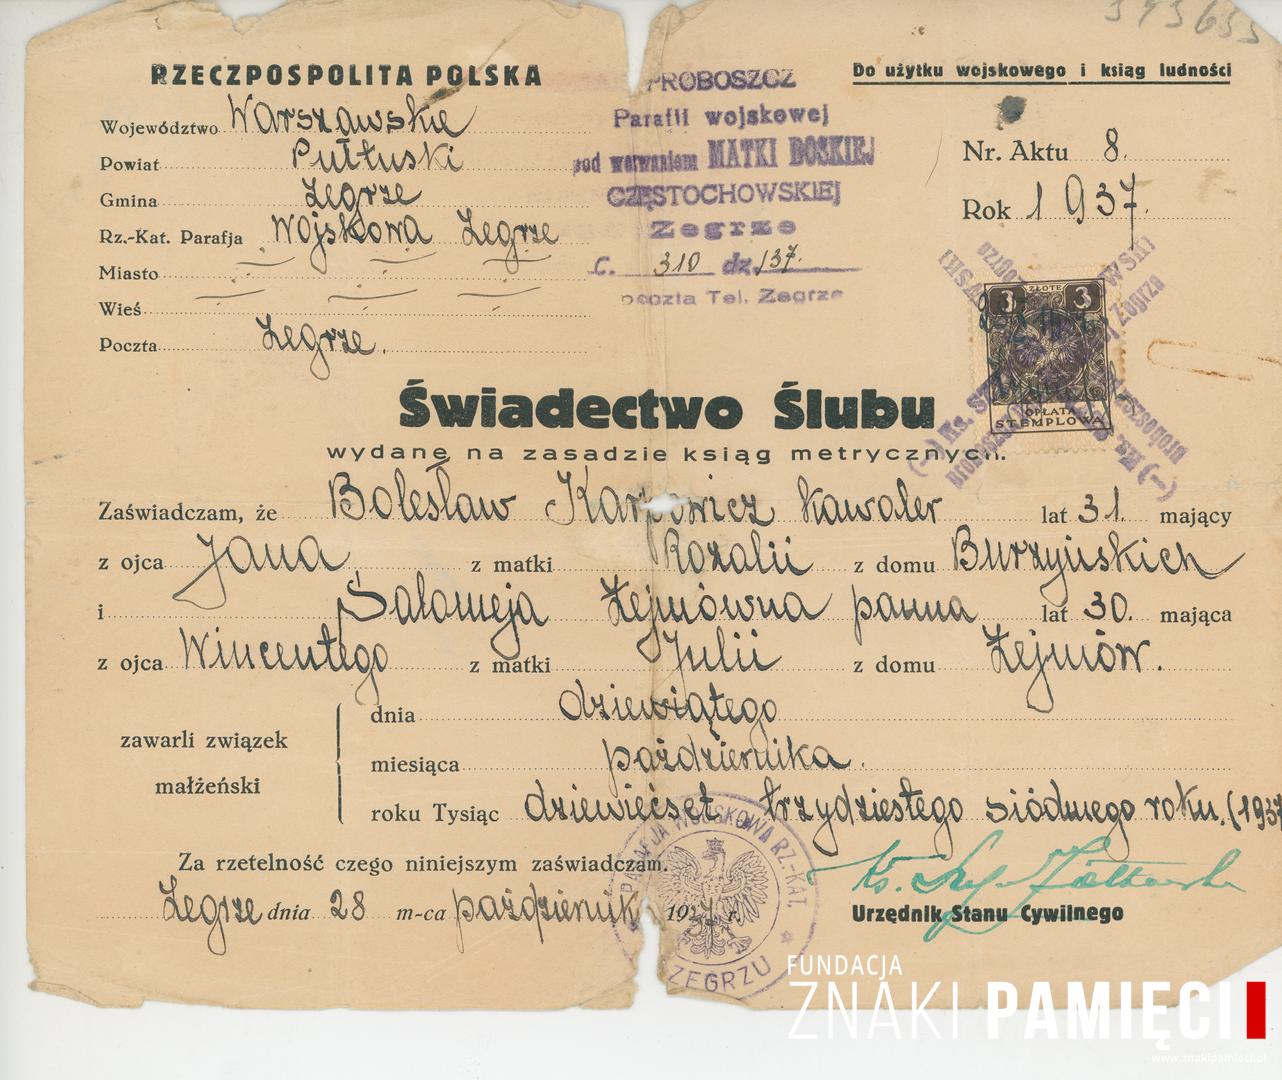 393633
RZECZPOSPOLITA POLSKA
Do użytku wojskowego i ksiąg ludności
Województwo Warszawskie
Powiat Pułtuski
Gmina Zegrze
Rz.-Kat. Parafja Wojskowa Zegrze
Miasto
Wieś
Poczta Zegrze.
PROBOSZCZ
Parafii wojskowej
pod wezwaniem MATKI BOSKIEJ
CZĘSTOCHOWSKIEJ
Zegrze
C. 310 dz. 137.
poczta Tel. Zegrze
Nr. Aktu 8.
Rok 1937.
3 ZŁOTE 3
OPŁATA
STEMPLOWA
Świadectwo Ślubu
wydane na zasadzie ksiąg metrycznych.
Zaświadczam, że Bolesław Karpowicz kawaler lat 31. mający
z ojca Jana z matki Rozalii z domu Burzyńskich
i Salomeja Żejmówna panna lat 30. mająca
z ojca Wincentego z matki Julii z domu Żejmów.
zawarli związek małżeński
dnia dziewiątego
miesiąca października.
roku Tysiąc dziewięćset trzydziestego siódmego roku. (1937
Za rzetelność czego niniejszym zaświadczam.
Zegrze dnia 28 m-ca październik 1937 r.
Ks.
Urzędnik Stanu Cywilnego
PARAFJA WOJSKOWA RZ.-KAT.
ZEGRZU
FUNDACJA
ZNAKI PAMIĘCI
www.znakipamieci.pl